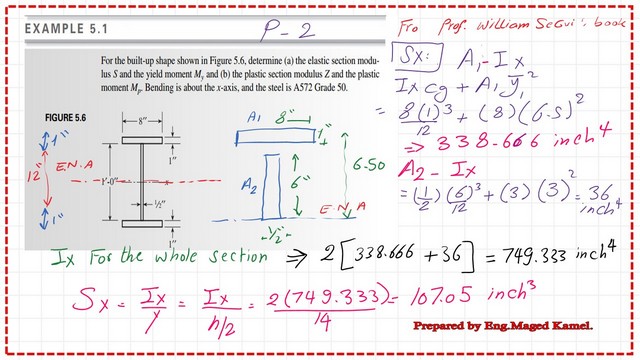 EXAMPLE 5.1
P-2
Fro Prof. William SeGui's book
For the built-up shape shown in Figure 5.6, determine (a) the elastic section modu-
lus S and the yield moment My and (b) the plastic section modulus Z and the plastic
moment Mp. Bending is about the x-axis, and the steel is A572 Grade 50.
Sx: A1-Ix
Ix cg + A1 ȳ1²
= 8(1)³/12 + (8)(6.5)²
⇒ 338.666 inch⁴
A2 - Ix
= (1/2)(6)³/12 + (3)(3)² = 36 inch⁴
FIGURE 5.6
8"
1"
1'-0"
x
1/2"
1"
1"
12"
E.N.A
1"
A1
8"
1"
A2
6"
6.50
E.N.A
1/2"
Ix For the whole section ⇒ 2[338.666 + 36] = 749.333 inch⁴
Sx = Ix/y = Ix/h/2 = 2(749.333)/14 = 107.05 inch³
Prepared by Eng.Maged Kamel.